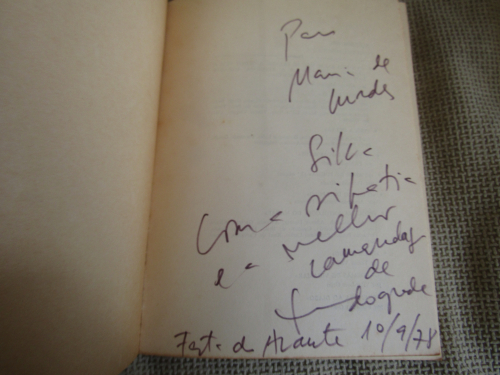 Para
Maria de
Lurdes
Silva
Com a simpatia
e a melhor
camaradagem
de
Festa do Avante 10/9/78